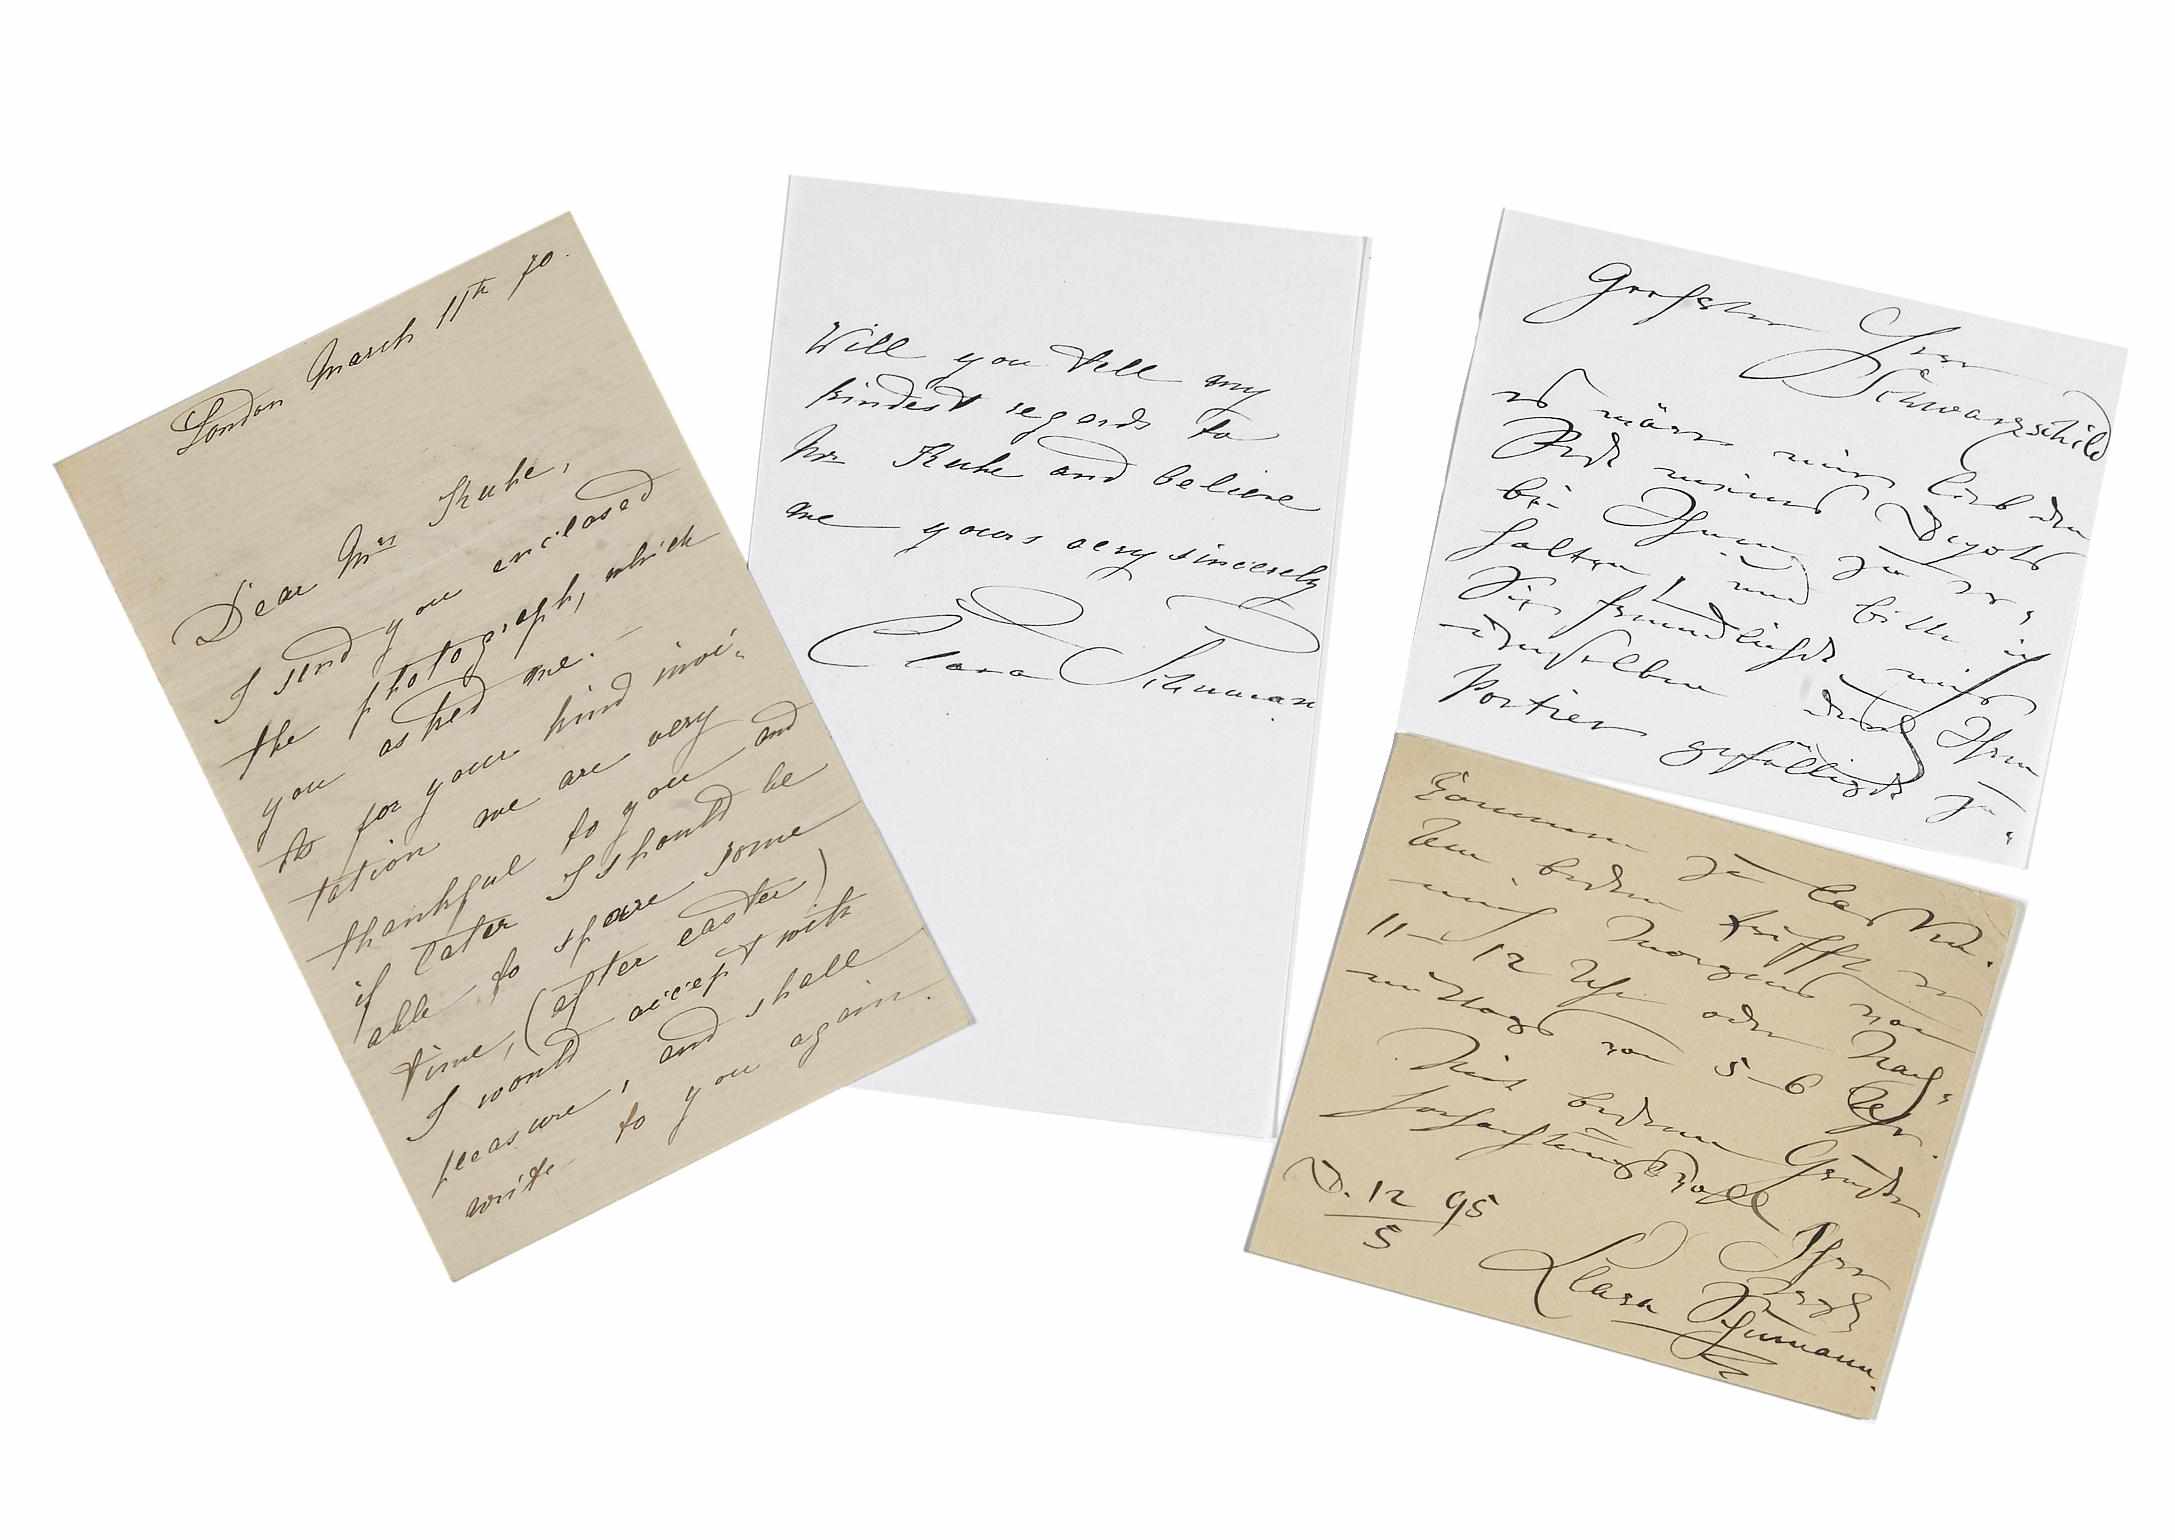 London March 11th 70.
Dear Mrs Kuhe,
I send you enclosed
the photograph, which
you asked me. —
As for your kind invi-
tation we are very
thankful to you and
if later I should be
able to spare some
time, (after easter)
I would accept with
pleasure, and shall
write to you again.
Will you tell my
kindest regards to
Mr Kuhe and believe
me yours very sincerely
Clara Schumann
Geehrter Herr
Schwarzschild
es wäre mir lieb den
Rest meines Depots
bei Ihnen zu er-
halten, und bitte ich
Sie freundlichst mir
denselben durch Ihren
Portier gefälligst zu-
kommen zu lassen.
Am besten trifft er
mich Morgens von
11–12 Uhr oder Nach-
mittags von 5–6 Uhr.
Mit bestem Gruße
hochachtungsvoll
Ihre
D. 12/5 95
Clara Schumann.